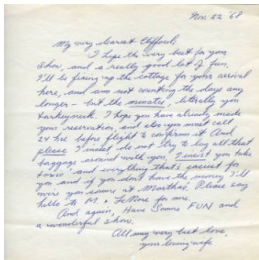 Nov. 22 '68
My very dearest
I hope the very best for your
show, and a really good lot of fun.
I'll be fixing up the cottage for your arrival
here, and am not counting the days any
longer - but the minutes, literally you
turkeyneck. I hope you have already made
your reservation, and also you must call
24 hrs before flight to confirm it. And
please I insist do not try to lug all that
baggage around with you, I insist you take
taxis and everything that's easiest for
you and if you don't have the money I'll
wire you some, at Martha's. Please say
hello to M. + for me.
And again, Have Some FUN and
a wonderful show.
All my very best love,
your loving wife